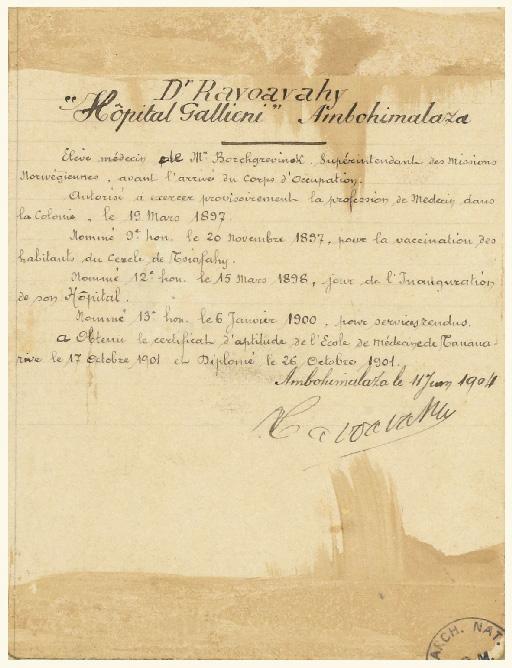 Dr Ravoavahy
"Hôpital Gallieni" Ambohimalaza
Elève médecin de Mr Borchgrevinck Supérintendant des Missions
Norwégiennes, avant l'arrivé du Corps d'Occupation.
Autorisé a exercer provisoirement la profession de Médecin dans
la Colonie, le 19 Mars 1897.
Nommé 9e hon. le 20 Novembre 1897, pour la vaccination des
habitants du Cercle de Tsiafahy.
Nommé 12e hon. le 15 Mars 1898, jour de l'Inauguration
de son Hôpital.
Nommé 13e hon. le 6 Janvier 1900, pour services rendus.
a Obtenu le certificat d'aptitude de l'Ecole de Médecine de Tanana-
rive le 17 Octobre 1901 et Diplomé le 26 Octobre 1901.
Ambohimalaza le 11 Juin 1904
Ravoavahy
ARCH. NAT.
O.M.